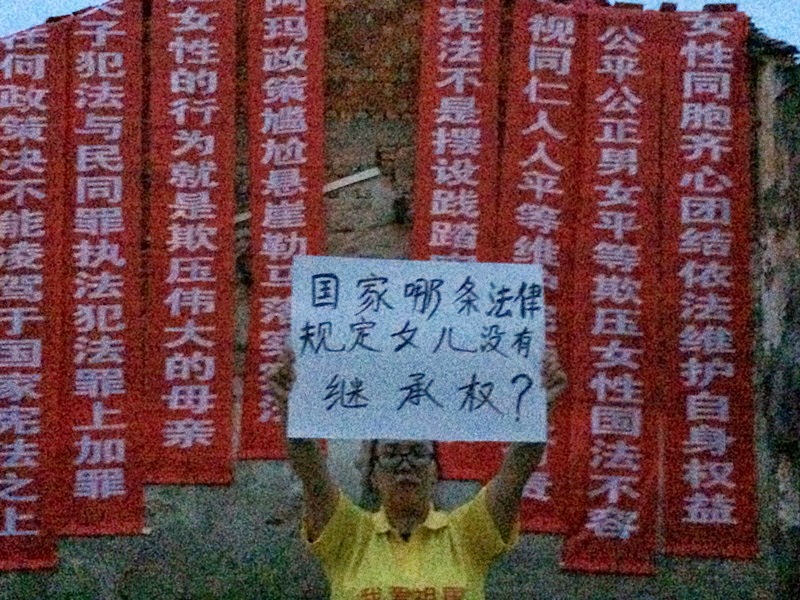 任何政策决不能凌驾于国家宪法之上
子犯法与民同罪执法犯法罪上加罪
女性的行为就是欺压伟大的母亲
政策尴尬悬崖勒马落实
宪法不是摆设践踏
视同仁人人平等维
公平公正男女平等欺压女性国法不容
女性同胞齐心团结依法维护自身权益
国家哪条法律
规定女儿没有
继承权？
我爱祖国